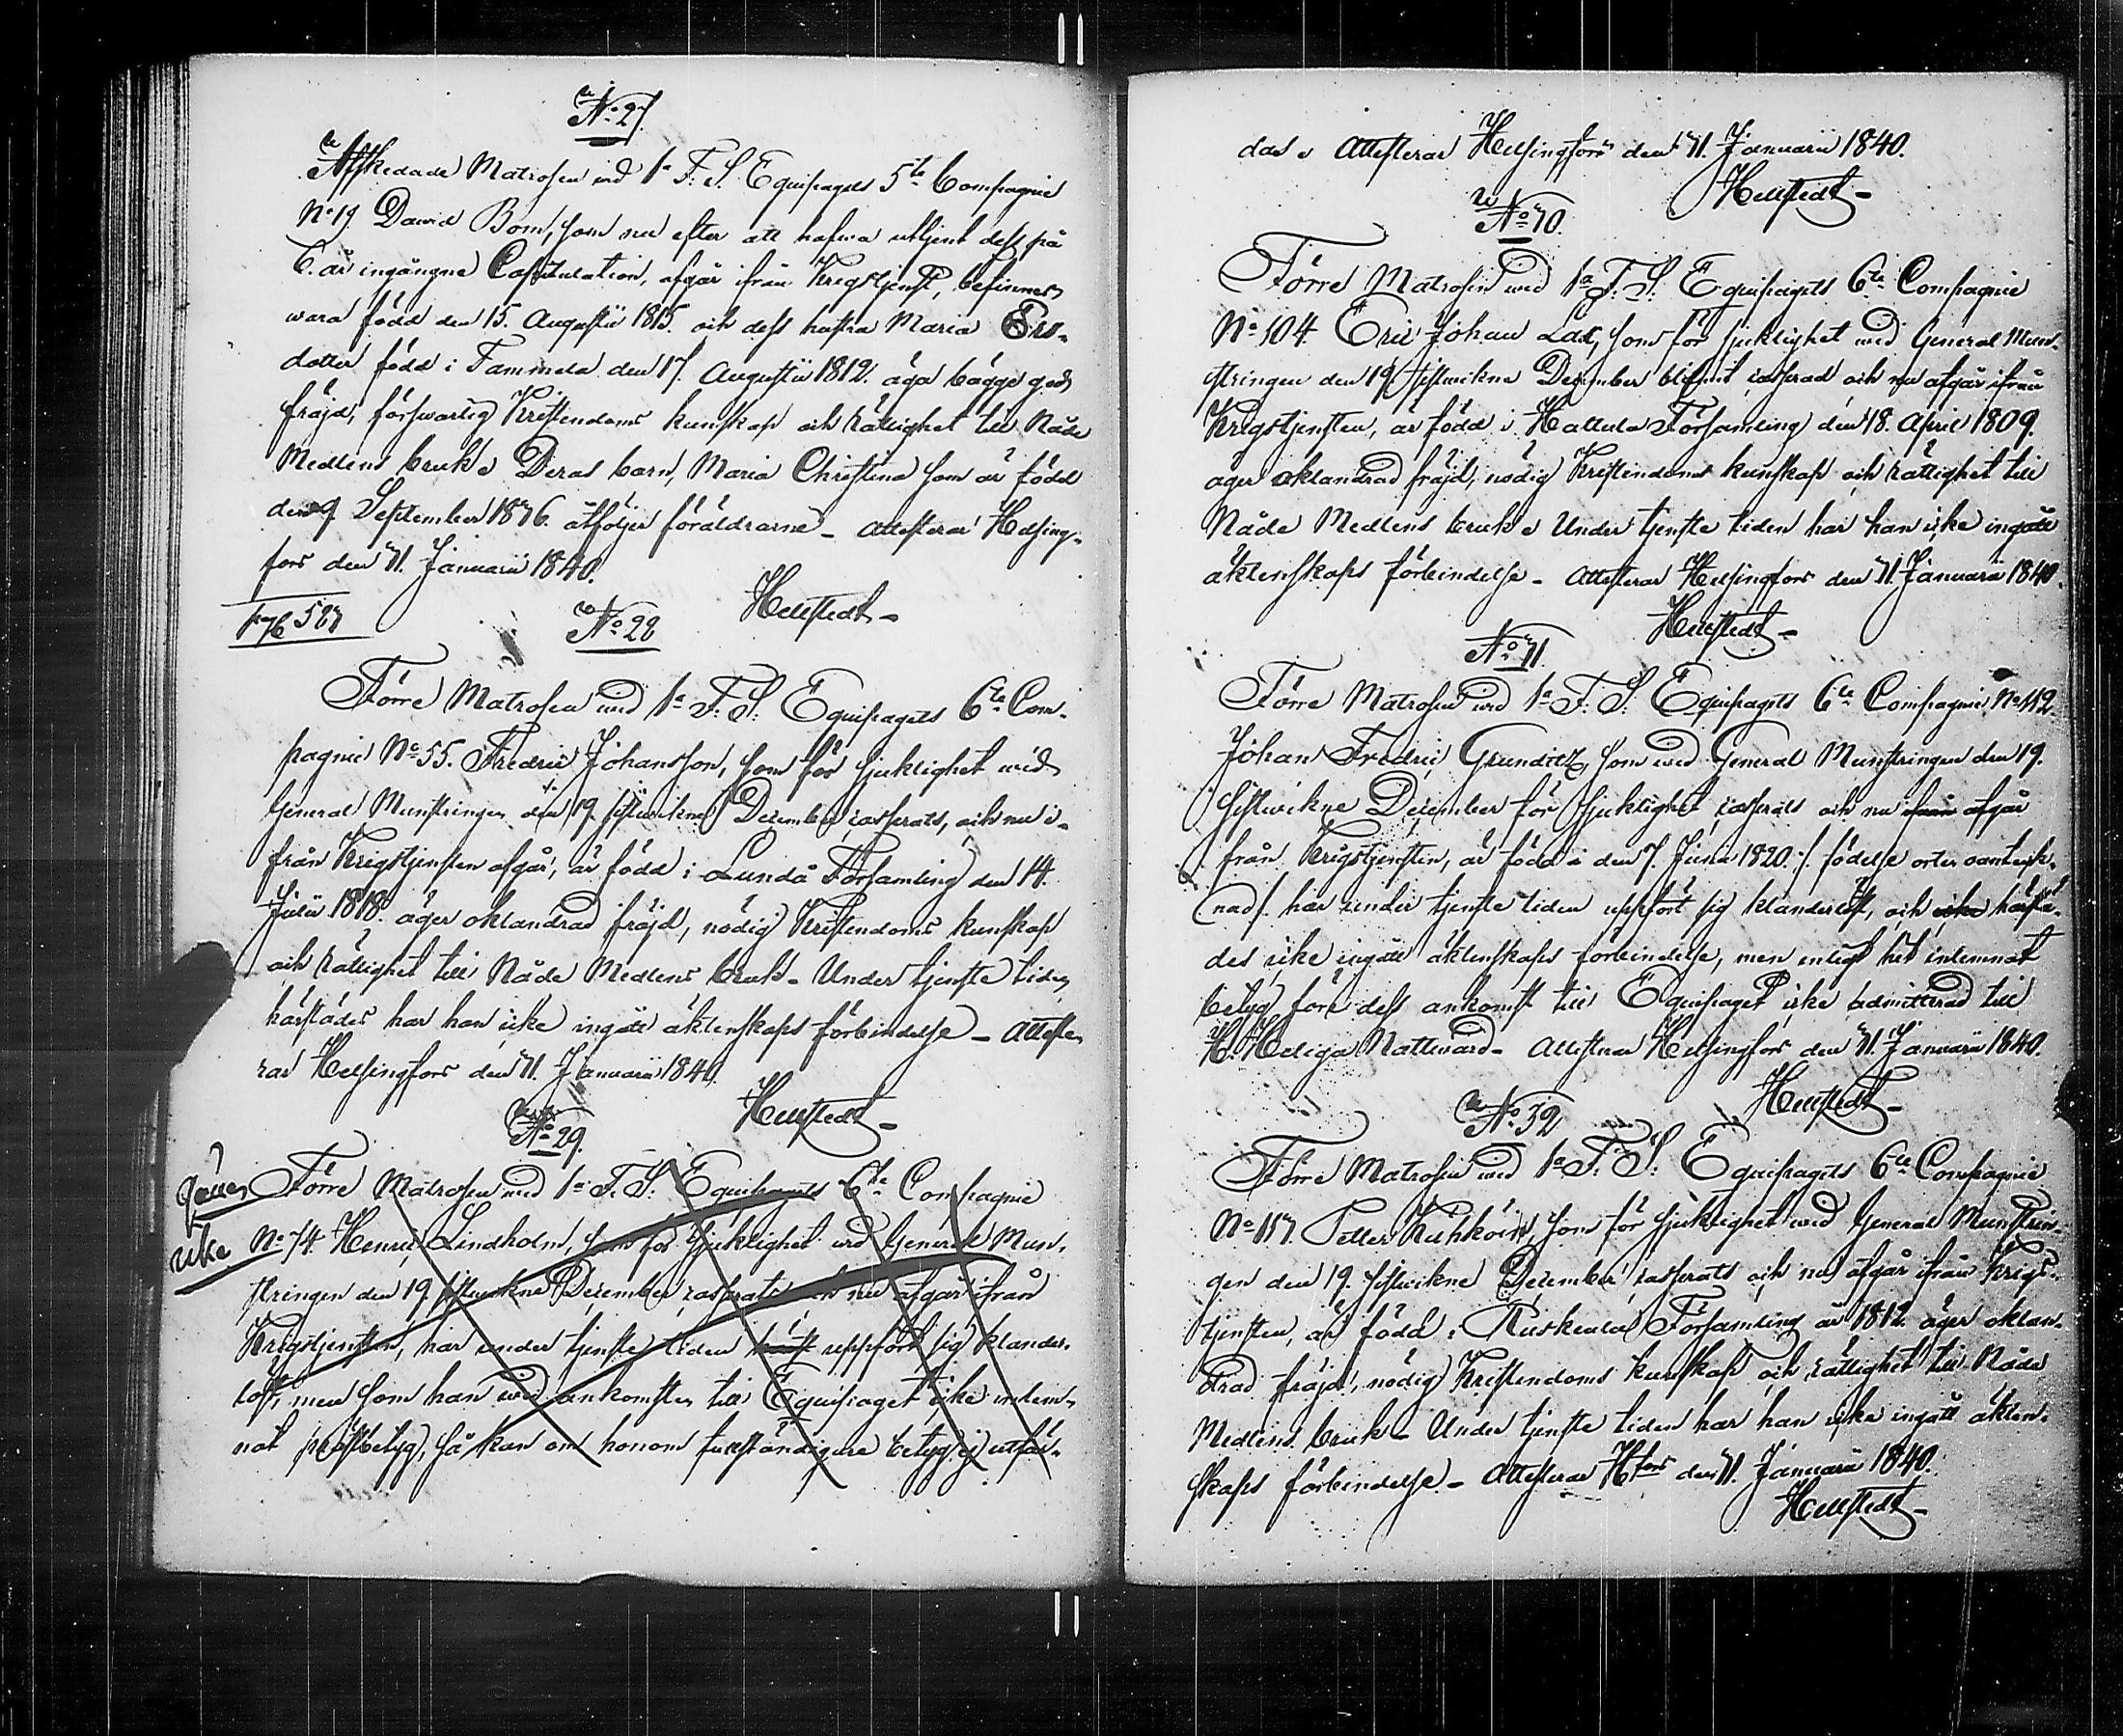 No 27.
Afskedade Matrosen wid 1a F. S. Equipagets 5te Compagnie
No 19. David Bom, som nu efter att hafwa uttjent dess på
6. år ingångne Capitulation, afgår ifrån Krigstjenst, befinnes
wara född den 15. Augustii 1815. och dess hustru Maria Ers-
dotter född i Tammela den 17. Augustii 1812. äga bägge god
fräjd, förswarlig Kristendoms kunskap och rättighet till Nåde
Medlens bruk. Deras barn, Maria Christina som är född
den 9. September 1836. åtföljer föräldrarne - Attesterar Helsing-
fors den 31. Januarii 1840.
Hellstedt -
No 28
Förre Matrosen wid 1a F. S. Equipagets 6te Com-
pagnie No 55. Fredric Johansson, som för sjuklighet wid
General Munstringen den 19. sistwikne December casserats, och nu i-
från Krigstjensten afgår, är född i Lundå Församling den 14.
Julii 1818. äger oklandrad fräjd, nödig Kristendoms kunskap
och rättighet till Nåde Medlens bruk - Under tjenste tiden
härstädes har han icke ingått äktenskaps förbindelse - Atteste-
rar Helsingfors den 31. Januarii 1840.
Hellstedt -
No 29.
gäller Förre Matrosen wid 1a F. S. Equipagets 6te Compagnie
icke No 74. Henric Lindholm, som för sjuklighet wid General Mun-
stringen den 19. sistwikne December casserats och nu afgår ifrån
Krigstjensten, har under tjenste tiden uppfört sig klander-
löst, men som han wid ankomsten till Equipaget icke inlem-
nat prestbetyg, så kan om honom fullständigare betyg ej utfär-
das. Attesterar Helsingfors den 31. Januarii 1840.
Hellstedt -
No 30.
Förre Matrosen wid 1a F. S. Equipagets 6te Compagnie
No 104. Eric Johan Lax, som för sjuklighet wid General Mun-
stringen den 19. sistwikne December blifwit casserad och nu afgår ifrån
Krigstjensten, är född i Hattula Församling den 18. April 1809.
äger oklandrad fräjd, nödig Kristendoms kunskap och rättighet till
Nåde Medlens bruk. Under tjenste tiden har han icke ingått
äktenskaps förbindelse - Attesterar Helsingfors den 31. Januarii 1840.
Hellstedt -
No 31.
Förre Matrosen wid 1a F. S. Equipagets 6te Compagnie No 112.
Johan Fredric Grunditz, som wid General Munstringen den 19.
sistwikne December för sjuklighet casserats och nu ifrån afgår
från Krigstjensten, är född i den 7. Junii 1820. /. födelse orten oanteck-
nad /. har under tjenste tiden uppfört sig klanderlöst, och icke härstä-
des icke ingått äktenskaps förbindelse, men enligt hit inlemnat
betyg före dess ankomst till Equipaget icke admitterad till
H. Heliga Nattward - Attesterar Helsingfors den 31. Januarii 1840.
Hellstedt -
No 32
Förre Matrosen wid 1a F. S. Equipagets 6te Compagnie
No 117. Petter Kuhkoin, som för sjuklighet wid General Munstrin-
gen den 19. sistwikne December casserats och nu afgår ifrån Krigs-
tjensten, är född i Ruskeala Församling år 1812. äger oklan-
drad fräjd, nödig Kristendoms kunskap och rättighet till Nåde
Medlens bruk - Under tjenste tiden har han icke ingått äkten-
skaps förbindelse - Attesterar Hfors den 31. Januarii 1840.
Hellstedt -